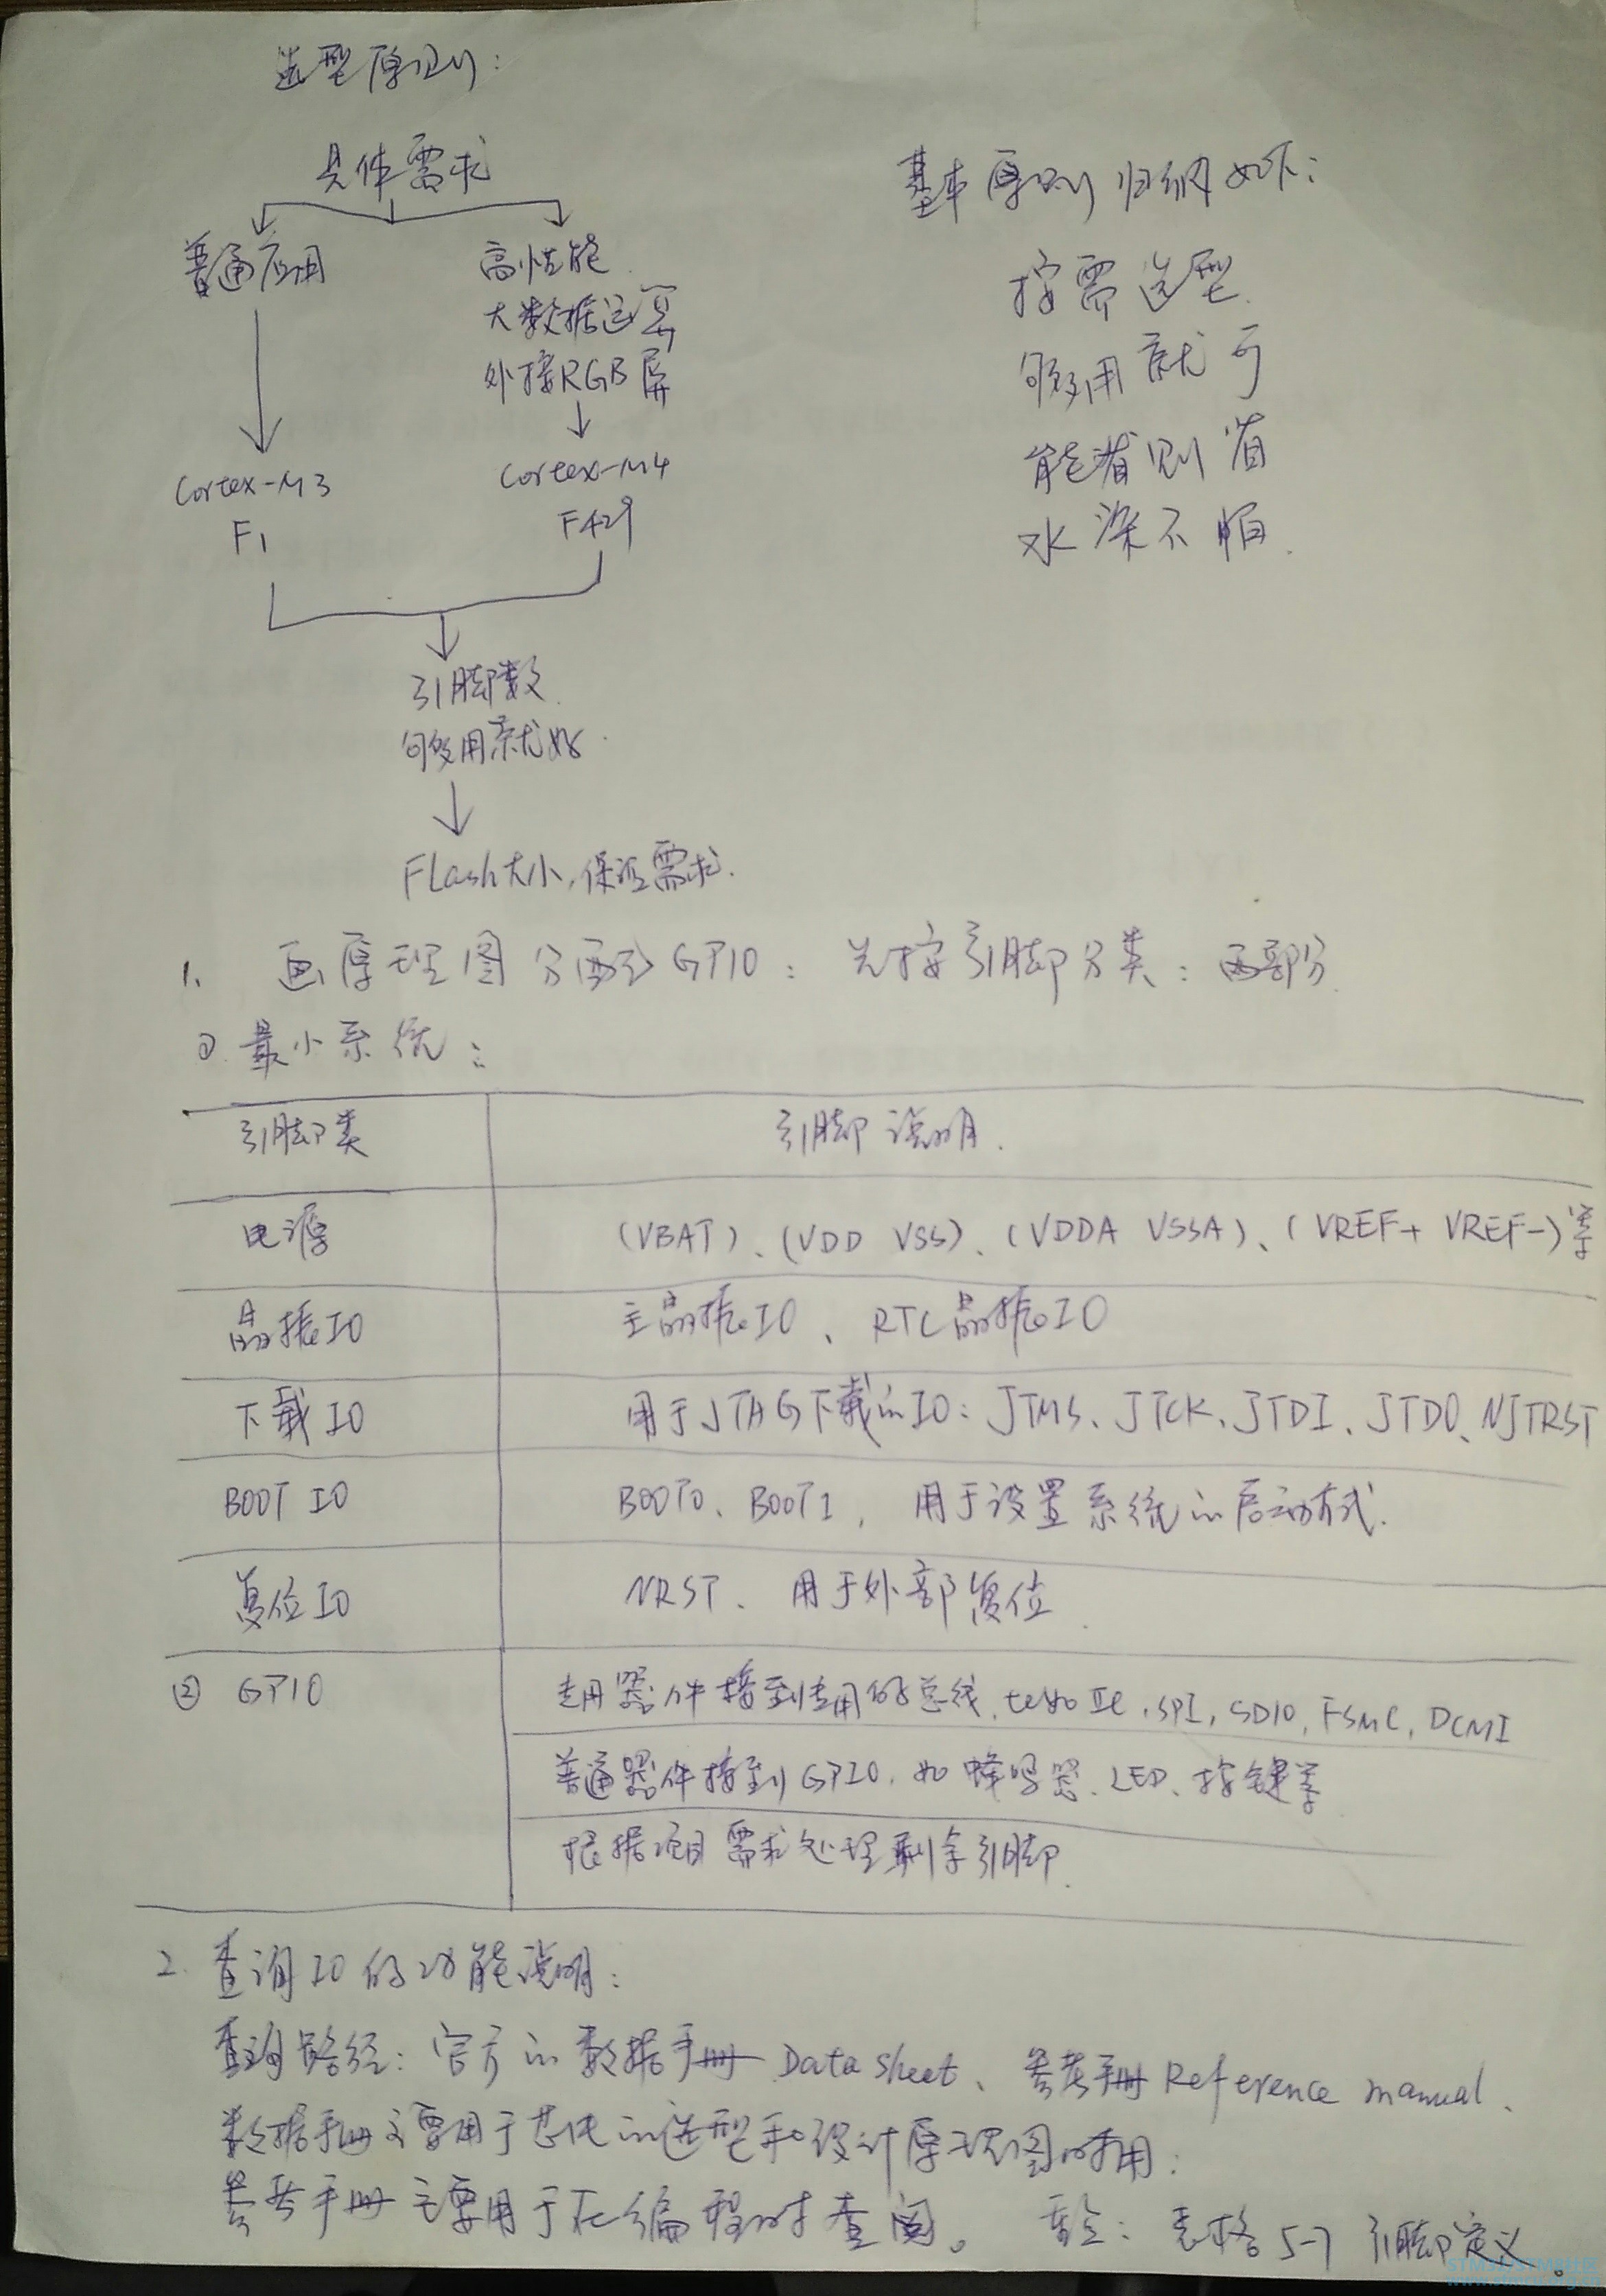 选型原则:
具体需求
普通应用
高性能
大数据运算
外接RGB屏
Cortex-M3
F1
Cortex-M4
F429
引脚数
够用就好.
Flash大小,保证需求.
基本原则归纳如下:
按需选型.
够用就可
能省则省
水
不
1. 画原理图分配到GPIO: 先按引脚分类: 两部分.
①.最小系统:
引脚类 引脚说明.
电源 (VBAT)、(VDD VSS)、(VDDA VSSA)、(VREF+ VREF-)等
晶振IO 主晶振IO、RTC晶振IO
下载IO 用于JTAG下载的IO:JTMS、JTCK、JTDI、JTDO、NJTRST
BOOT IO BOOT0、BOOT1, 用于设置系统的启动方式.
复位IO NRST、用于外部复位.
② GPIO 专用器件接到专用的总线, IIC,SPI,SDIO,FSMC,DCMI
普通器件接到GPIO,如蜂鸣器、LED、按键等
根据项目需求处理剩余引脚.
2. 查询IO的功能说明:
查询路径:官方的数据手册 Data sheet、参考手册 Reference manual、
数据手册主要用于芯片的选型和设计原理图时用;
参考手册主要用于在编程时查阅。 重点:表格5-7 引脚定义。
www.stmcu.org.cn